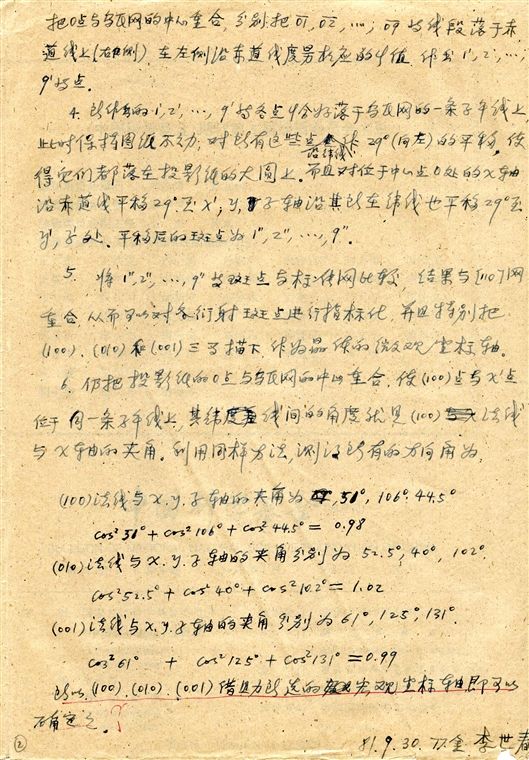 把O点与乌氏网的中心重合,分别把O1,O2,…,O9的线段落于赤
道线上(右侧),在左侧沿赤道线度另相应的ψ值,作出1′,2′,…,
9′的点.
4. 所作出的1′,2′,…,9′的各点分好落于乌氏网的一条子午线上,
此时保持图纸不动,对所有这些点沿纬线作29°(向左)的平移,使
得它们都落在投影纸的大圆上.而且对位于中心点O处的x轴
沿赤道线平移29°至x′;y,z轴沿其所在纬线也平移29°至
y′,z′处.平移后的斑点为1″,2″,…,9″.
5. 将1″,2″,…,9″的斑点与标准网比较,结果与[110]网
重合,从而可以对各衍射斑点进行指标化,并且特别把
(100),(010)和(001)三点描下,作为晶体的微观坐标轴.
6. 仍把投影纸的O点与乌氏网的中心重合,使(100)点与x′点
位于同一条子午线上,其纬度线间的角度就是(100)法线
与x轴的夹角.利用同样方法,测得所有的方向角为,
(100)法线与x.y.z轴的夹角为51°,106°.44.5°
cos²51°+cos²106°+cos²44.5°=0.98
(010)法线与x.y.z轴的夹角分别为52.5°,40°,102°.
cos²52.5°+cos²40°+cos²102°=1.02
(001)法线与x,y,z轴的夹角分别为61°,125°,131°.
cos²61°+cos²125°+cos²131°=0.99
所以,(100).(010).(001)借助所选的宏观坐标轴即可以
确定之.?
② 81.9.30. 李世春